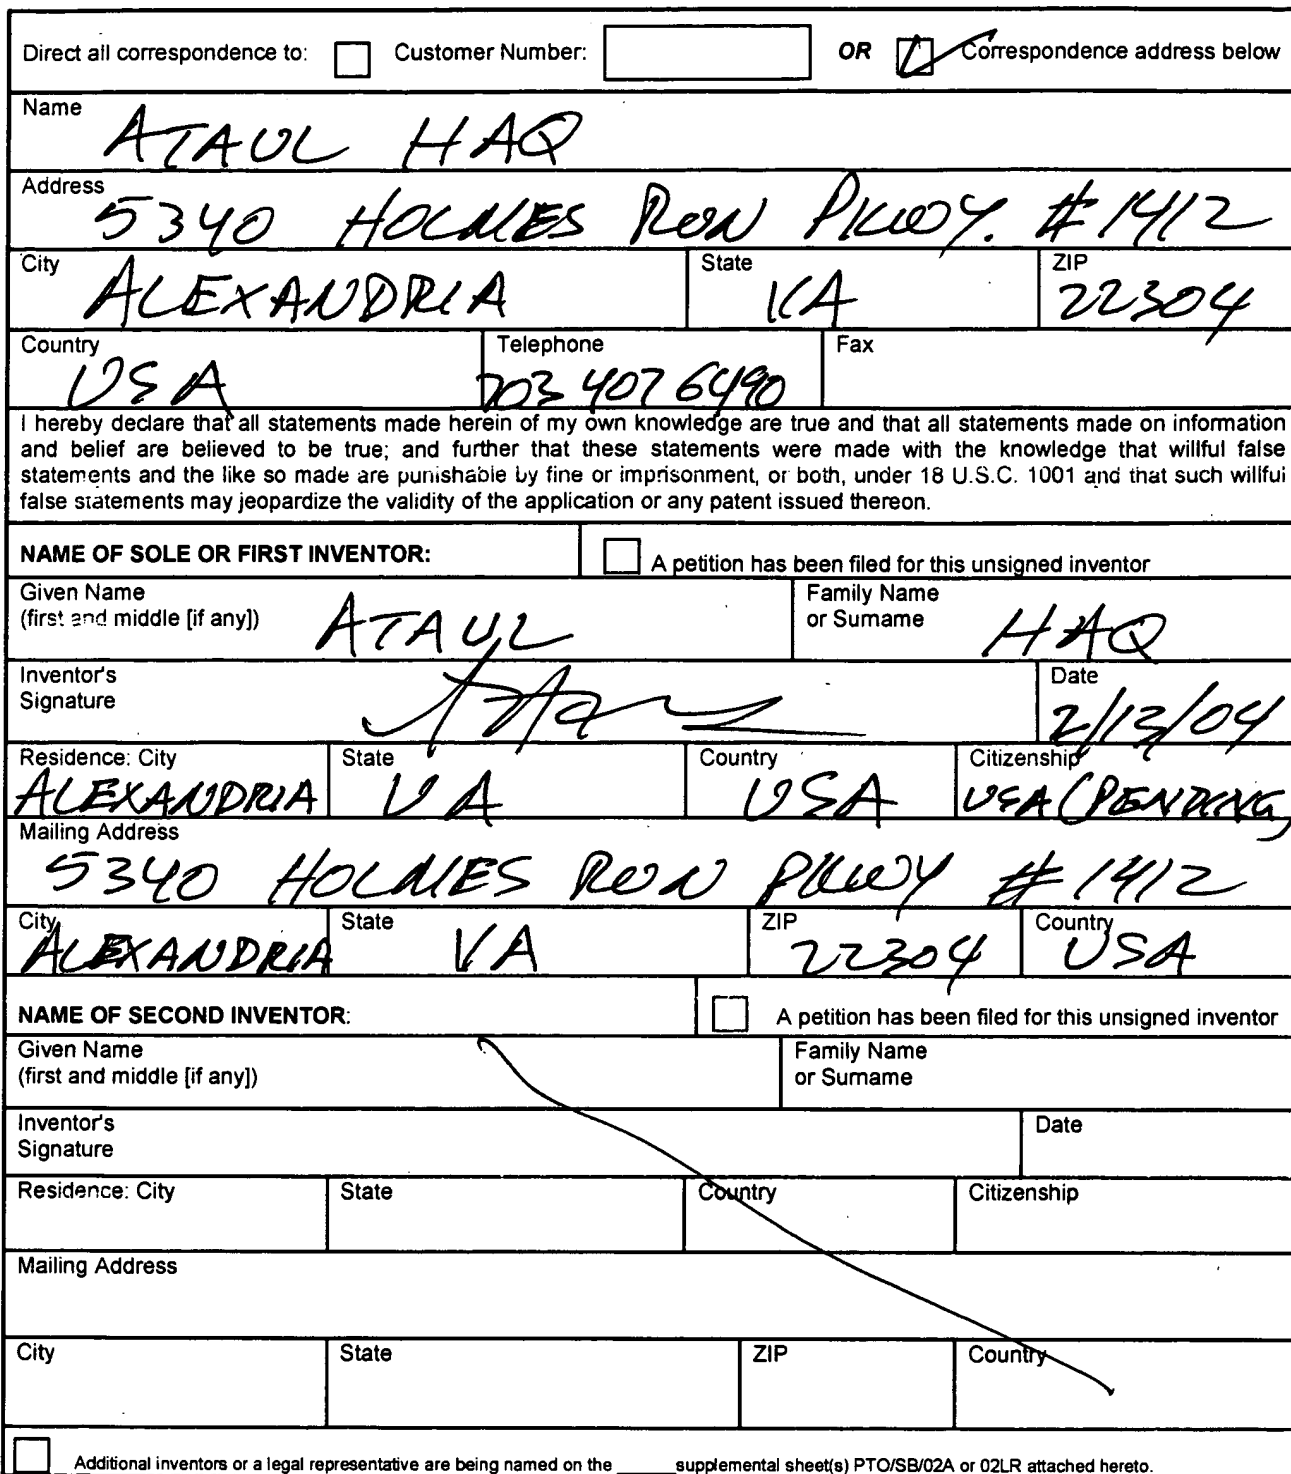 Direct all correspondence to: Customer Number: OR Correspondence address below
Name
ATAUL HAQ
Address
5340 HOLMES RUN PKWY. #1412
City State ZIP
ALEXANDRIA VA 22304
Country Telephone Fax
USA 703 407 6490
I hereby declare that all statements made herein of my own knowledge are true and that all statements made on information
and belief are believed to be true; and further that these statements were made with the knowledge that willful false
statements and the like so made are punishable by fine or imprisonment, or both, under 18 U.S.C. 1001 and that such willful
false statements may jeopardize the validity of the application or any patent issued thereon.
NAME OF SOLE OR FIRST INVENTOR: A petition has been filed for this unsigned inventor
Given Name Family Name
(first and middle [if any]) ATAUL or Surname HAQ
Inventor's Date
Signature 2/13/04
Residence: City State Country Citizenship
ALEXANDRIA VA USA USA (PENDING)
Mailing Address
5340 HOLMES RUN PKWY #1412
City State ZIP Country
ALEXANDRIA VA 22304 USA
NAME OF SECOND INVENTOR: A petition has been filed for this unsigned inventor
Given Name Family Name
(first and middle [if any]) or Surname
Inventor's Date
Signature
Residence: City State Country Citizenship
Mailing Address
City State ZIP Country
Additional inventors or a legal representative are being named on the ______supplemental sheet(s) PTO/SB/02A or 02LR attached hereto.